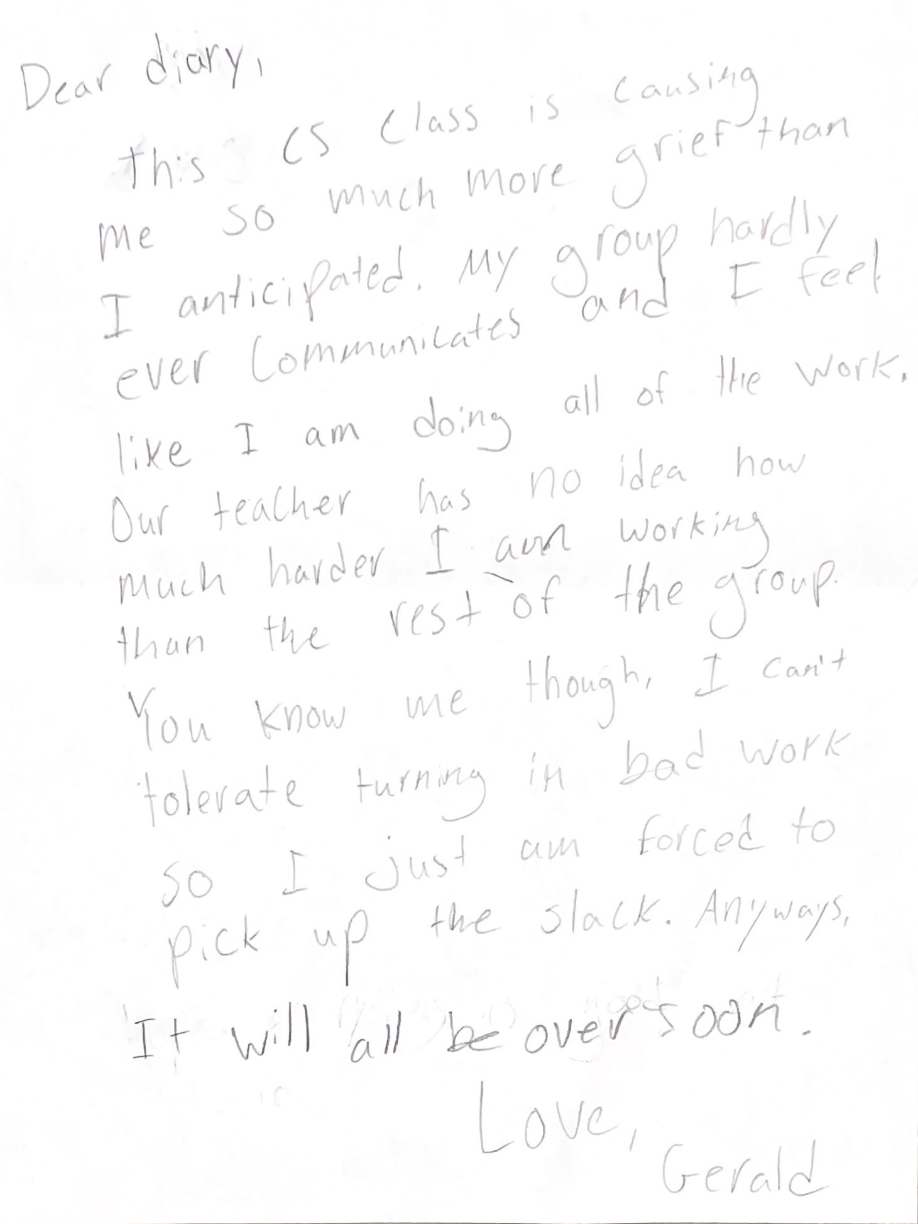 Dear diary,
This CS Class is causing
me so much more grief than
I anticipated. My group hardly
ever Communicates and I feel
like I am doing all of the work.
Our teacher has no idea how
much harder I am working
than the rest of the group.
You know me though, I can't
tolerate turning in bad work
so I just am forced to
pick up the slack. Anyways,
It will all be over soon.
Love,
Gerald